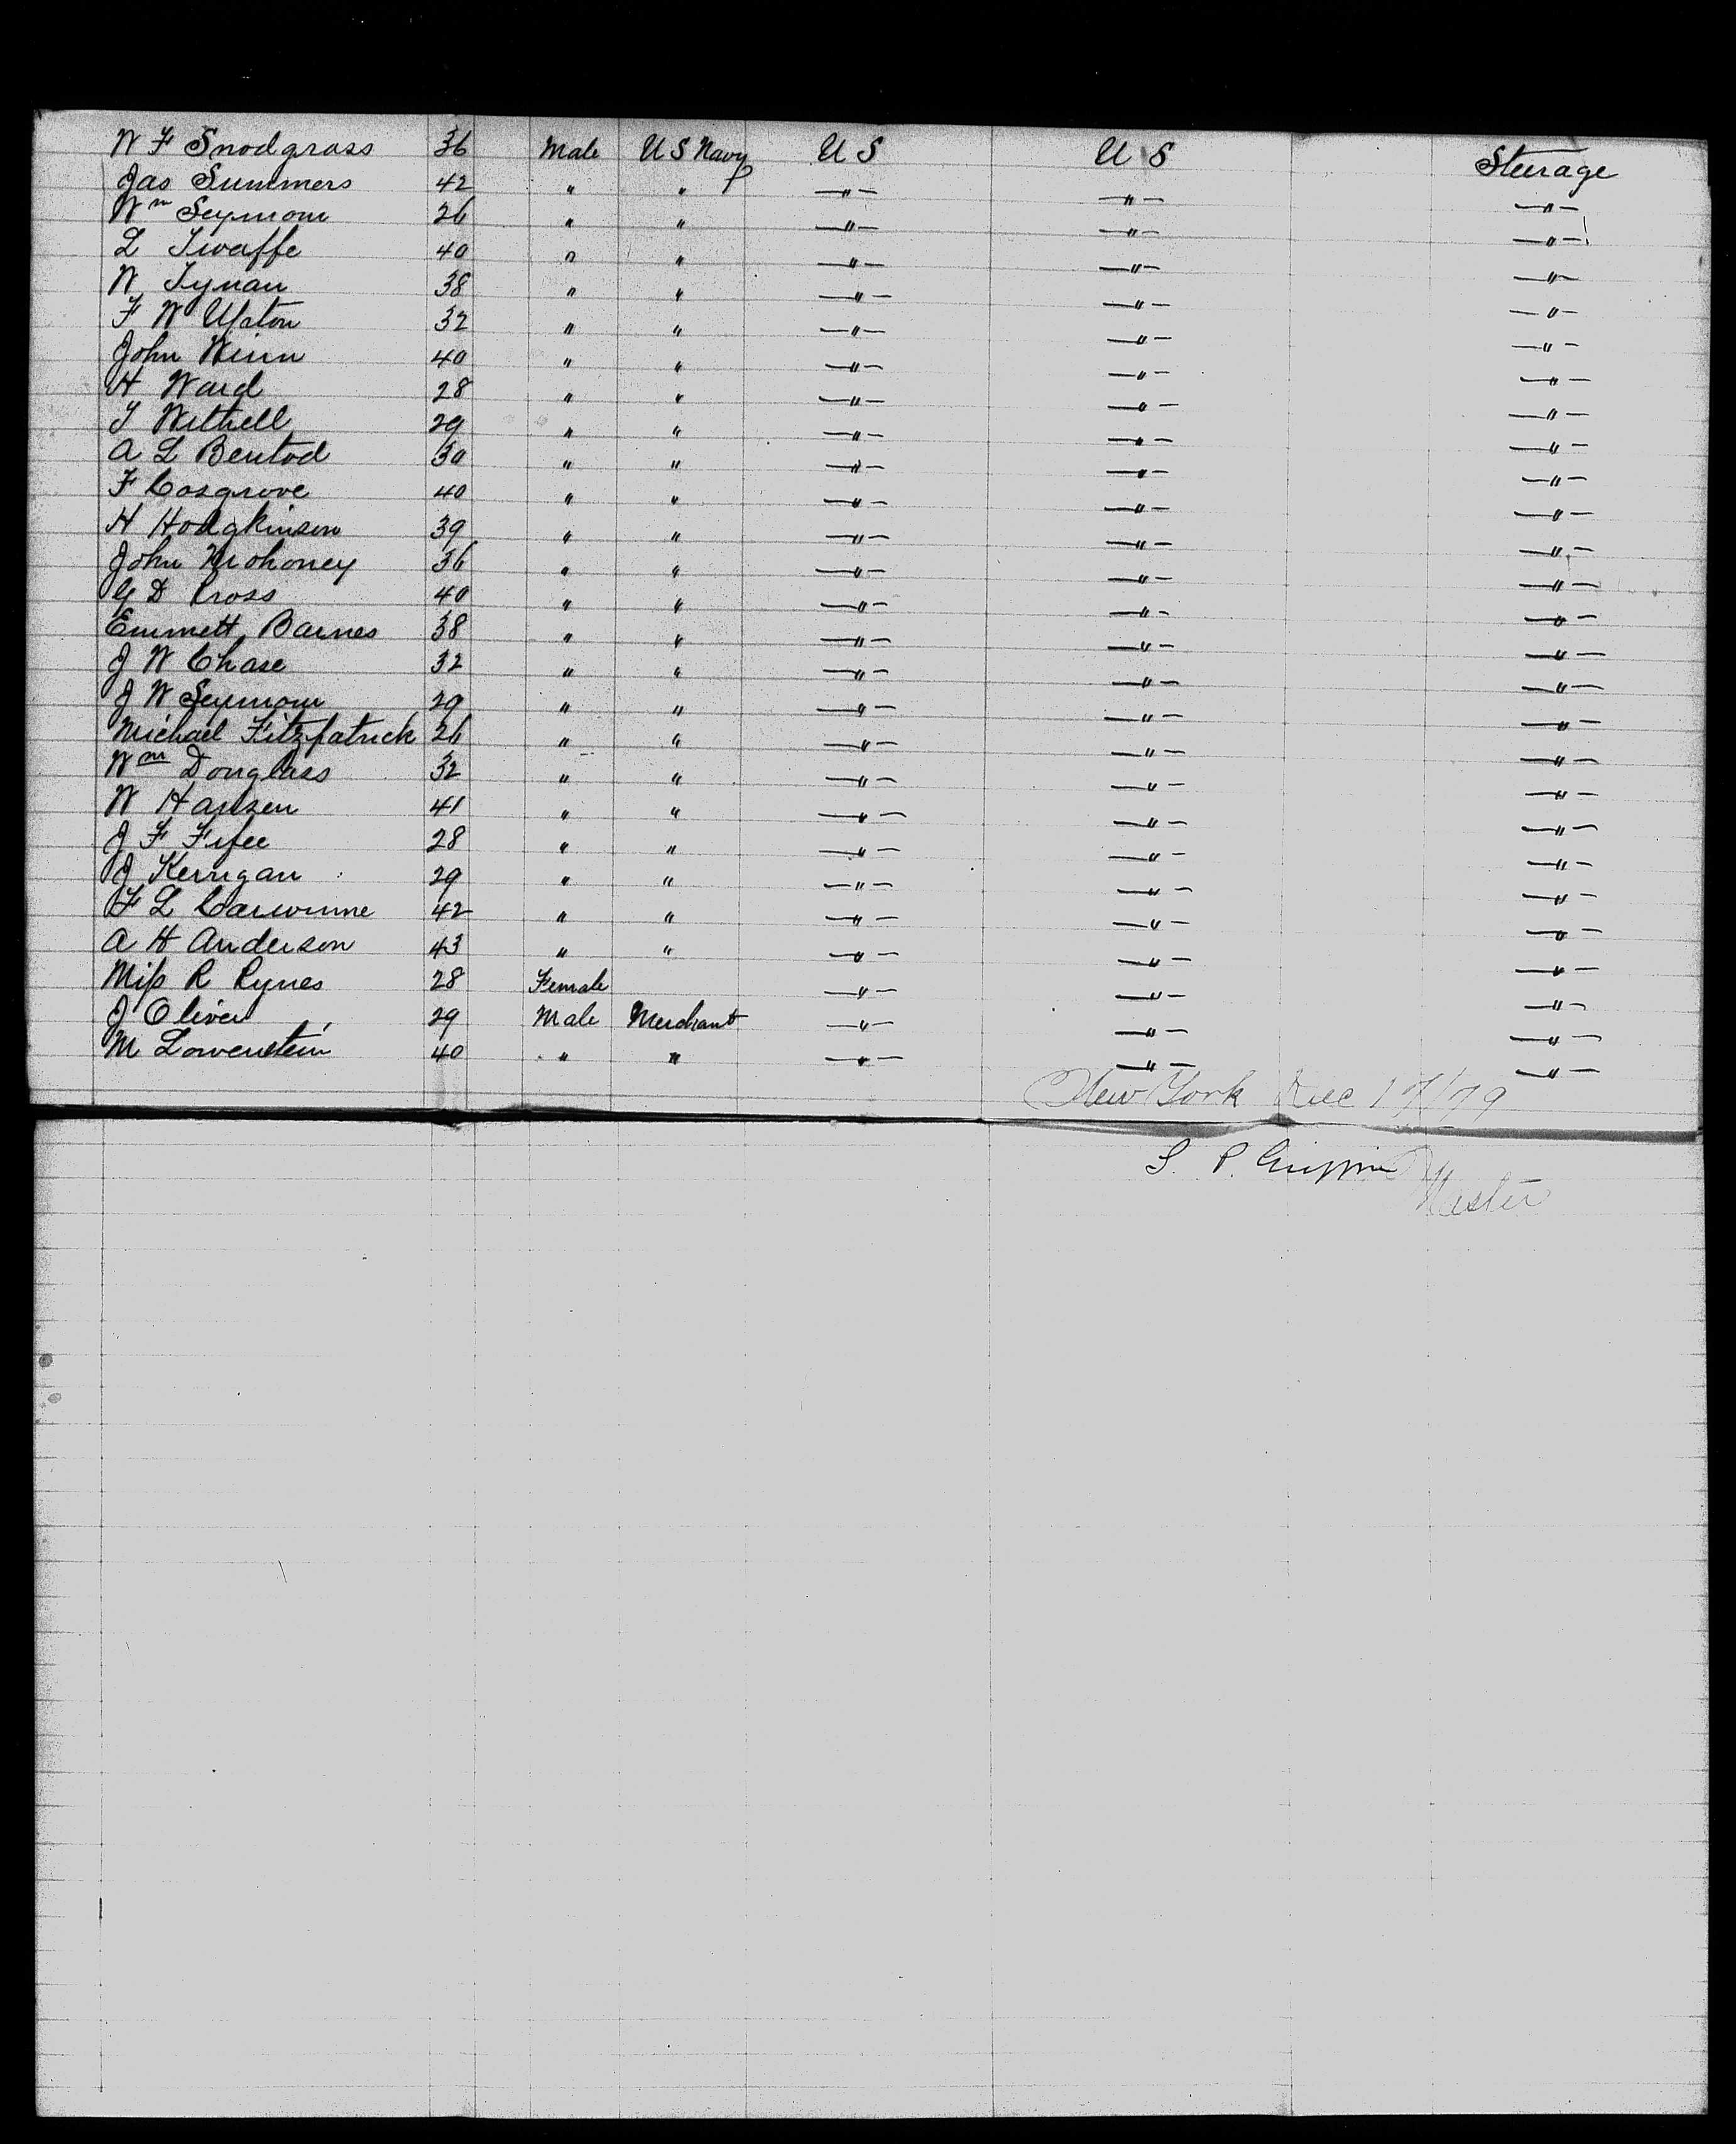 W F Snodgrass 36 Male U S Navy U S U S Steerage
Jas Summers 42 " " —"— —"— —"—
Wm Seymour 26 " " —"— —"— —"—
L Twaffe 40 " " —"— —"— —"—
W Tynan 38 " " —"— —"— —"—
F W Upton 32 " " —"— —"— —"—
John Winn 40 " " —"— —"— —"—
H Ward 28 " " —"— —"— —"—
T Withell 29 " " —"— —"— —"—
A L Bentod 30 " " —"— —"— —"—
F Cosgrove 40 " " —"— —"— —"—
H Hodgkinson 39 " " —"— —"— —"—
John Mohoney 36 " " —"— —"— —"—
G D Cross 40 " " —"— —"— —"—
Emmett Barnes 38 " " —"— —"— —"—
J W Chase 32 " " —"— —"— —"—
J W Seymour 29 " " —"— —"— —"—
Michael Fitzpatrick 26 " " —"— —"— —"—
Wm Douglass 32 " " —"— —"— —"—
W Hansen 41 " " —"— —"— —"—
J F Fifee 28 " " —"— —"— —"—
J Kerrigan 29 " " —"— —"— —"—
F L 42 " " —"— —"— —"—
A H Anderson 43 " " —"— —"— —"—
Miss R Rynes 28 Female —"— —"— —"—
J Oliver 29 Male Merchant —"— —"— —"—
M Lowenstein 40 " " —"— —"— —"—
New York Dec 17/79
S. P. Griffin
Master